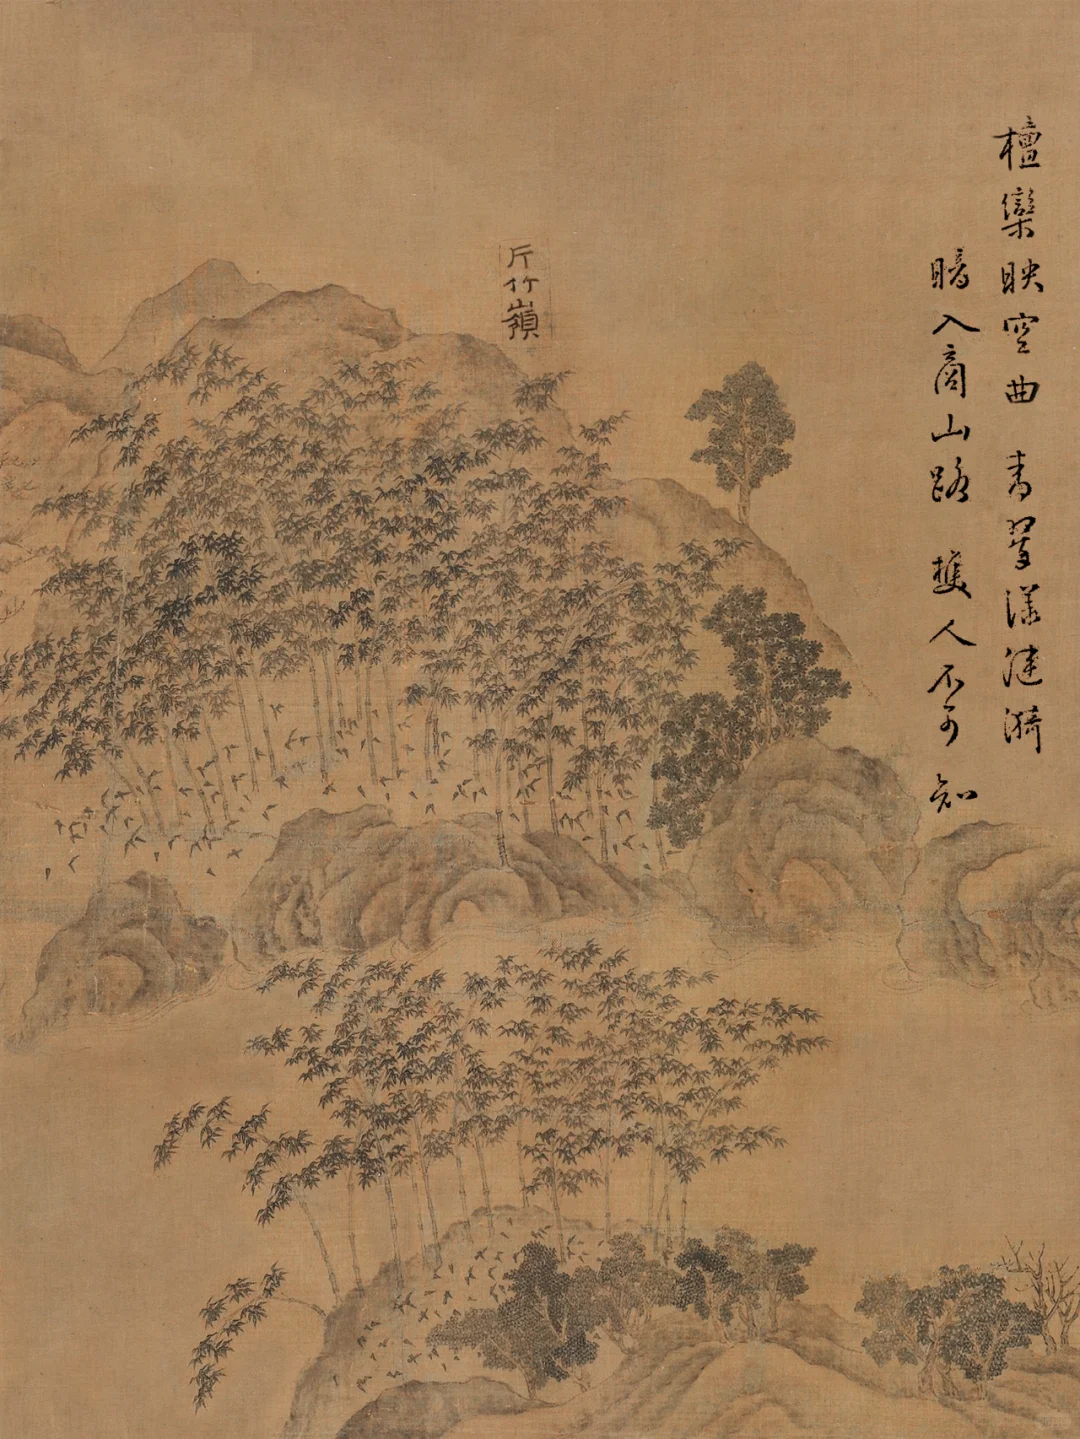 檀欒映空曲 青翠漾漣漪
暗入商山路 樵人不可知
斤竹嶺